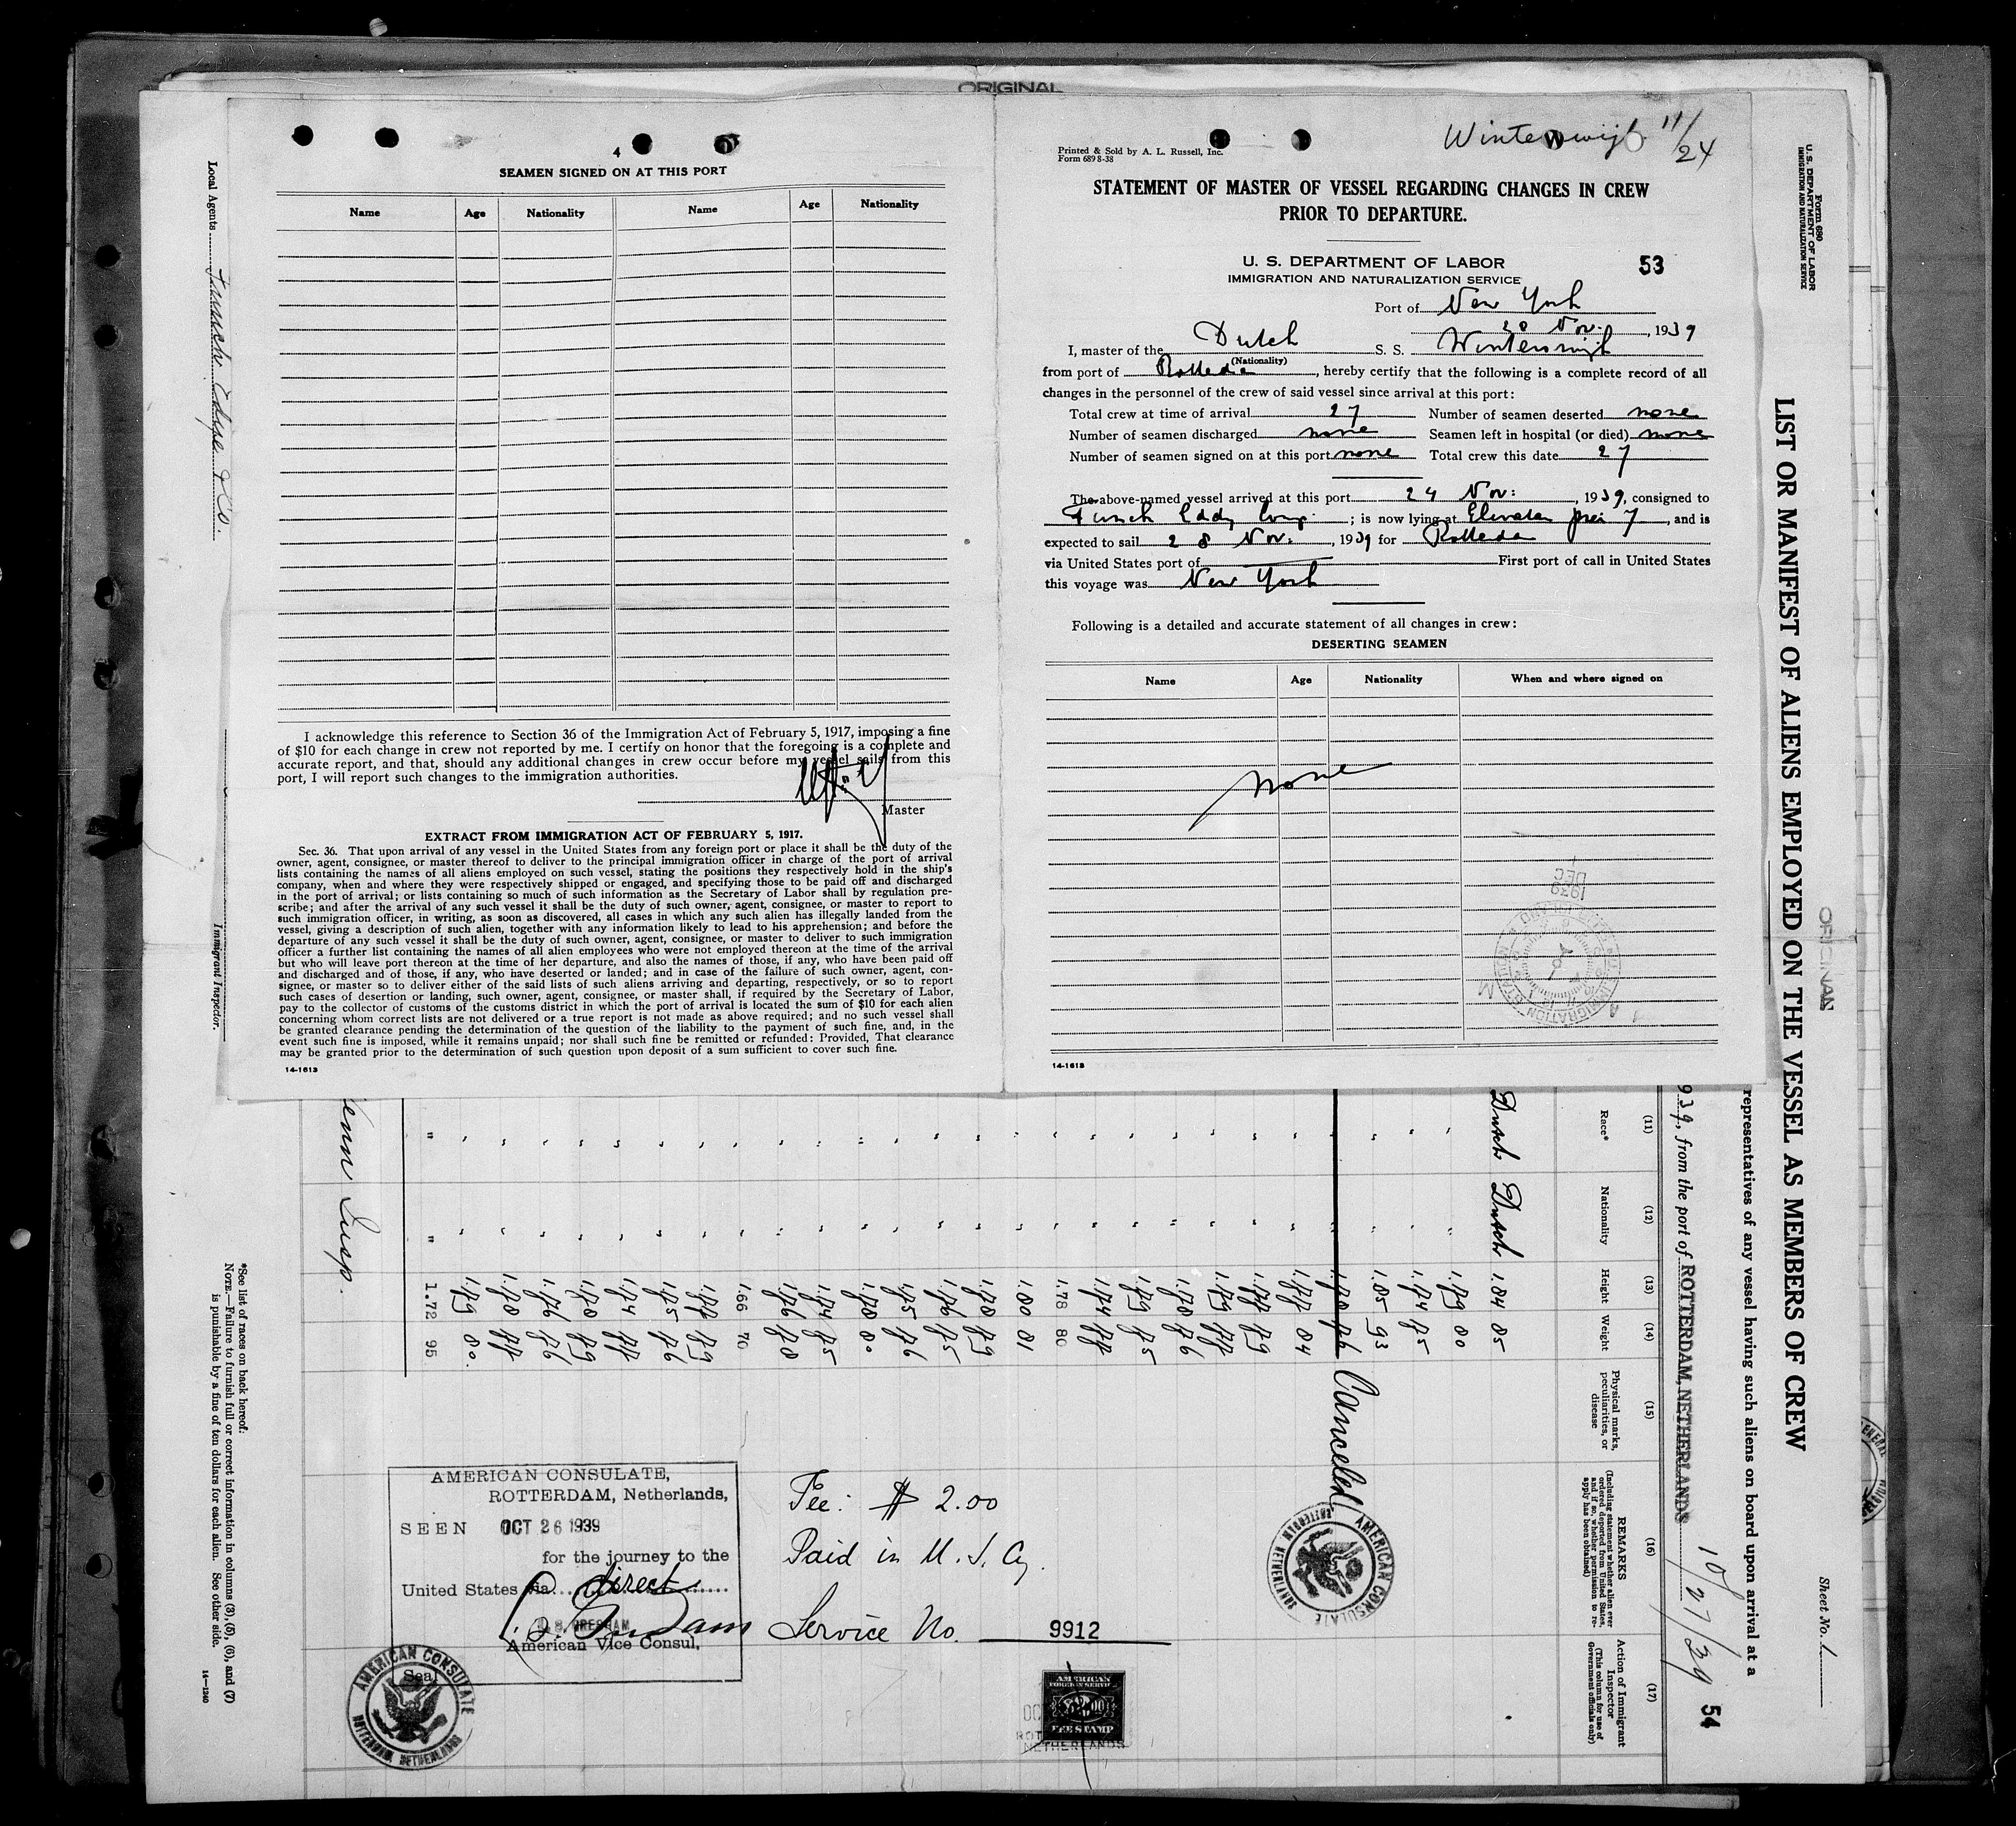 ORIGINAL
4
SEAMEN SIGNED ON AT THIS PORT
Name Age Nationality Name Age Nationality
I acknowledge this reference to Section 36 of the Immigration Act of February 5, 1917, imposing a fine
of $10 for each change in crew not reported by me. I certify on honor that the foregoing is a complete and
accurate report, and that, should any additional changes in crew occur before my vessel sails from this
port, I will report such changes to the immigration authorities.
Master
EXTRACT FROM IMMIGRATION ACT OF FEBRUARY 5, 1917.
Sec. 36. That upon arrival of any vessel in the United States from any foreign port or place it shall be the duty of the
owner, agent, consignee, or master thereof to deliver to the principal immigration officer in charge of the port of arrival
lists containing the names of all aliens employed on such vessel, stating the positions they respectively hold in the ship's
company, when and where they were respectively shipped or engaged, and specifying those to be paid off and discharged
in the port of arrival; or lists containing so much of such information as the Secretary of Labor shall by regulation pre-
scribe; and after the arrival of any such vessel it shall be the duty of such owner, agent, consignee, or master to report to
such immigration officer, in writing, as soon as discovered, all cases in which any such alien has illegally landed from the
vessel, giving a description of such alien, together with any information likely to lead to his apprehension; and before the
departure of any such vessel it shall be the duty of such owner, agent, consignee, or master to deliver to such immigration
officer a further list containing the names of all alien employees who were not employed thereon at the time of the arrival
but who will leave port thereon at the time of her departure, and also the names of those, if any, who have been paid off
and discharged and of those, if any, who have deserted or landed; and in case of the failure of such owner, agent, con-
signee, or master so to deliver either of the said lists of such aliens arriving and departing, respectively, or so to report
such cases of desertion or landing, such owner, agent, consignee, or master shall, if required by the Secretary of Labor,
pay to the collector of customs of the customs district in which the port of arrival is located the sum of $10 for each alien
concerning whom correct lists are not delivered or a true report is not made as above required; and no such vessel shall
be granted clearance pending the determination of the question of the liability to the payment of such fine, and, in the
event such fine is imposed, while it remains unpaid; nor shall such fine be remitted or refunded: Provided, That clearance
may be granted prior to the determination of such question upon deposit of a sum sufficient to cover such fine.
14-1613
Winterswijk 11/24
Printed & Sold by A. L. Russell, Inc.
Form 689 8-38
STATEMENT OF MASTER OF VESSEL REGARDING CHANGES IN CREW
PRIOR TO DEPARTURE.
U. S. DEPARTMENT OF LABOR 53
IMMIGRATION AND NATURALIZATION SERVICE
Port of New York
28 Nov., 1939
I, master of the Dutch S. S. Winterswijk
(Nationality)
from port of Rotterdam, hereby certify that the following is a complete record of all
changes in the personnel of the crew of said vessel since arrival at this port:
Total crew at time of arrival 27 Number of seamen deserted none
Number of seamen discharged none Seamen left in hospital (or died) none
Number of seamen signed on at this port none Total crew this date 27
The above-named vessel arrived at this port 24 Nov:, 1939, consigned to
Funch Eddy Comp.; is now lying at Elevator pier 7, and is
expected to sail 28 Nov., 1939 for Rotterdam
via United States port of First port of call in United States
this voyage was New York
Following is a detailed and accurate statement of all changes in crew:
DESERTING SEAMEN
Name Age Nationality When and where signed on
none
1939
DEC
14-1613
Form 680
U. S. DEPARTMENT OF LABOR
IMMIGRATION AND NATURALIZATION SERVICE
LIST OR MANIFEST OF ALIENS EMPLOYED ON THE VESSEL AS MEMBERS OF CREW
ORIGINAL
Sheet No. 1
representatives of any vessel having such aliens on board upon arrival at a
939, from the port of ROTTERDAM, NETHERLANDS 10/27/39 54
(11) (12) (13) (14) (15) (16) (17)
Race*
Nationality
Height
Weight
Physical marks, peculiarities, or disease
REMARKS
(Including statement whether alien ever ordered deported from United States, and if so, whether permission to reapply has been obtained)
Action of Immigrant Inspector
(This column for use of Government officials only)
Dutch Dutch 1.84 85
1.79 80
1.74 75
1.85 93
1.78 76 Canceled
1.77 84
1.77 79
1.79 77
1.78 76
1.79 75
1.74 77
1.78 80
1.80 81
1.78 79
1.76 75
1.75 76
1.78 80
1.74 75
1.76 78
1.66 70
1.77 79
1.75 76
1.74 77
1.78 79
1.76 76
1.78 77
1.79 80.
" " 1.72 95
AMERICAN CONSULATE
ROTTERDAM NETHERLANDS
AMERICAN CONSULATE,
ROTTERDAM, Netherlands,
SEEN OCT 26 1939
for the journey to the
United States via direct
American Vice Consul,
Seal
AMERICAN CONSULATE
ROTTERDAM NETHERLANDS
Fee: $ 2.00
Paid in U. S. Cy.
Service No. 9912
AMERICAN
FOREIGN SERVICE
$2.00
FEE STAMP
NETHERLANDS
Local Agents Funch Edye & Co.
Immigrant Inspector.
*See list of races on back hereof.
NOTE.—Failure to furnish full or correct information in columns (3), (5), (6), and (7)
is punishable by a fine of ten dollars for each alien. See other side.
14-1240